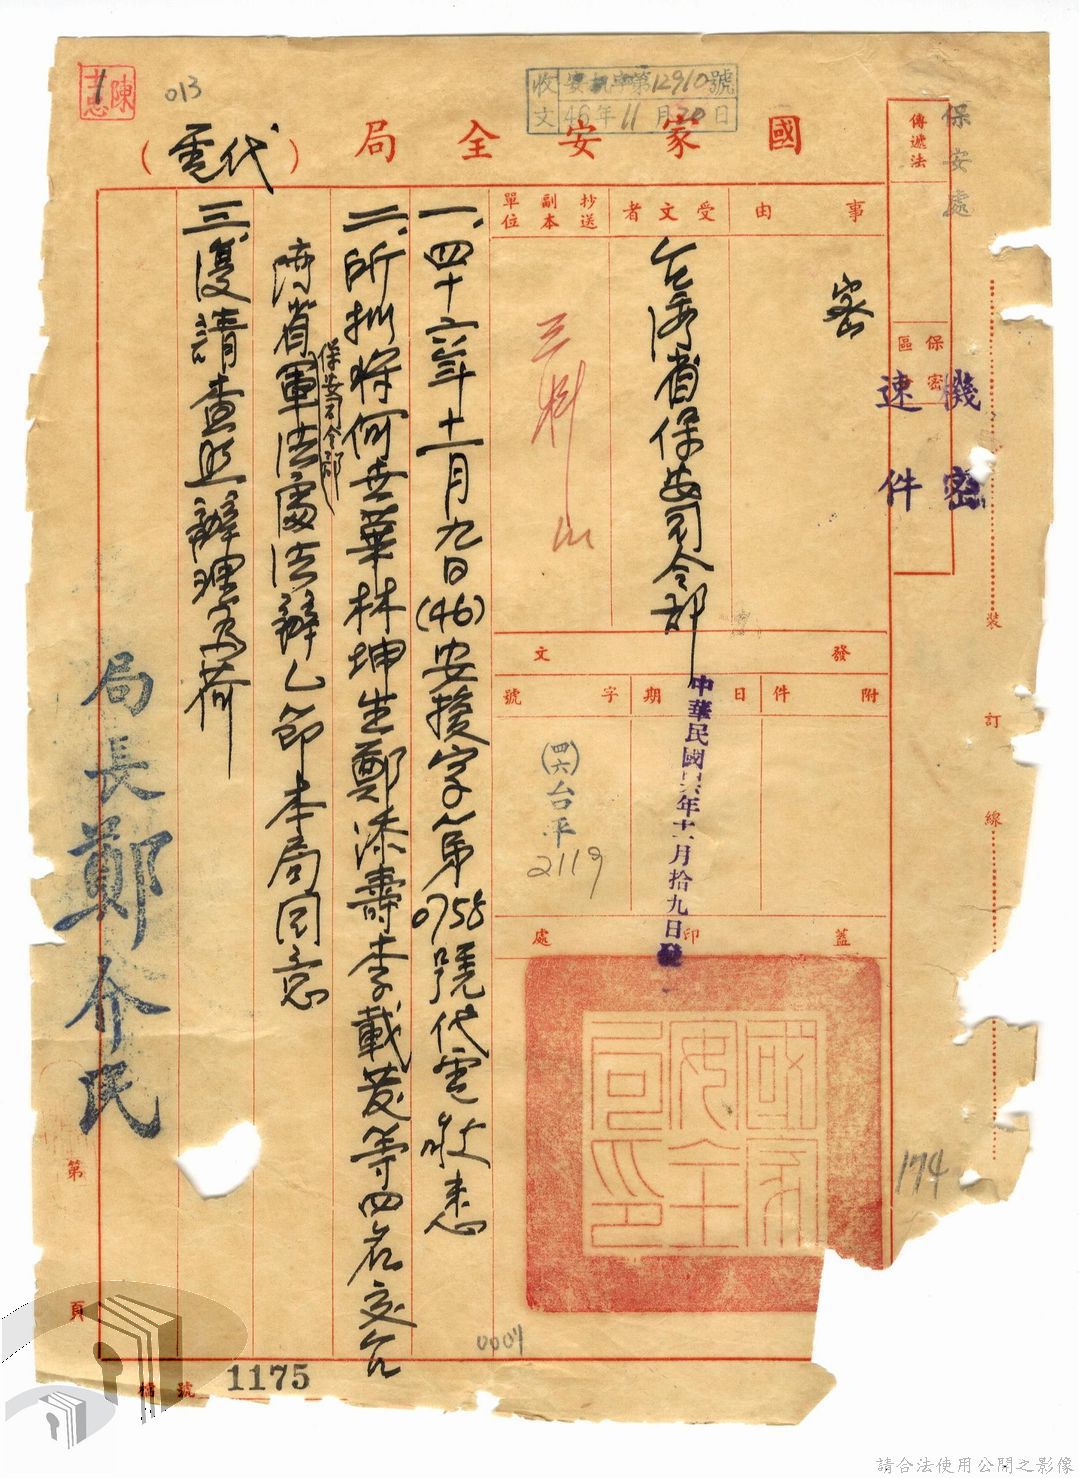 陳
志
1
013
收文 安机字第12910號
46年11月20日
國家安全局（代電）
保安處
傳遞法
保密區
機密
速件
事由
密
受文者
台湾省保安司令部
抄送副本單位
三科
發文
附件
日期
中華民國四六年十一月拾九日發
字號
(四六)台平
2119
蓋印處
國家安全局印
一、四十六年十一月九日(46)安揆字第0758號代電敬悉
二、所拟將何世華林坤生鄭添壽李載發等四名交台
湾省保安司令部軍法處法辦乙節本局同意
三、復請查照辦理為荷
局長鄭介民
裝
訂
線
174
第
頁
0007
檔號
1175
請合法使用公開之影像